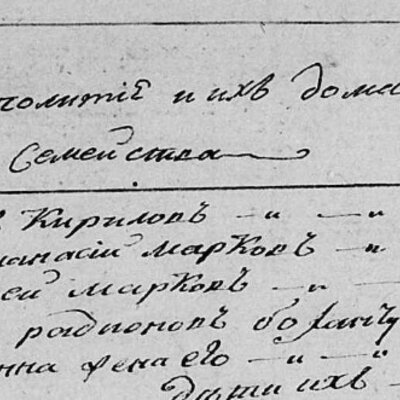 политїе и ихъ дома
Семейства
Кириловъ
анасїи марковъ
еи марковъ
радионовъ
нна жена его
дѣти ихъ